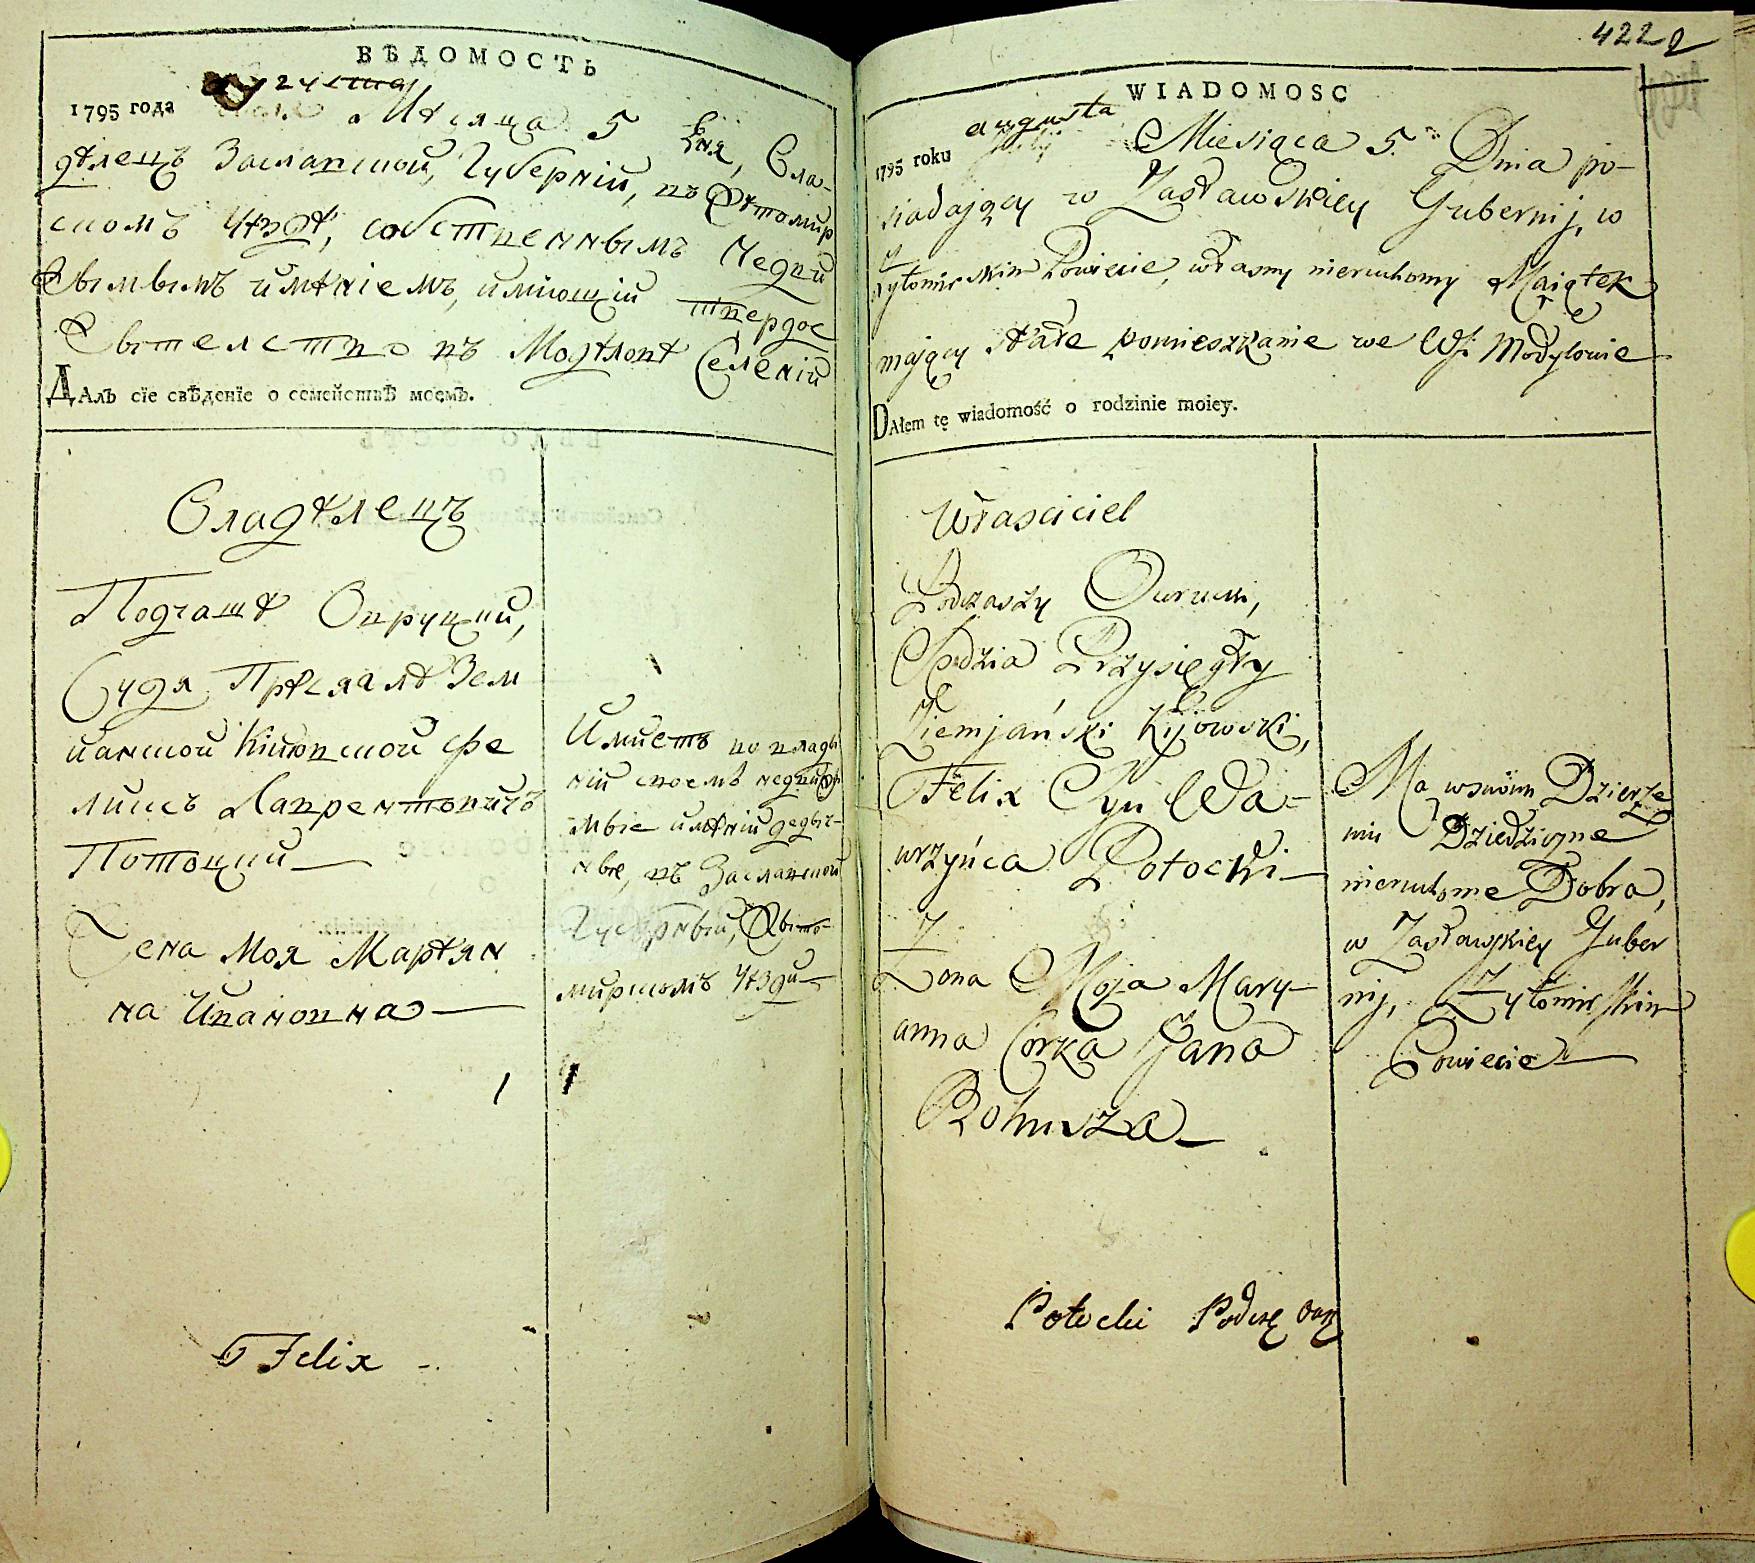 ВѢДОМОСТЬ
августа
1795 года Мѣсяца 5 Дня, Вла-
дѣлецъ Заславской Губерніи, въ Житомир
скомъ Уѣздѣ, собственнымъ Недви
жымымъ имѣніемъ, имѣющій твердое
жытелство въ Модѣловѣ Селеніи
Далъ сїе свѣденїе о семействѣ моемъ.
Владѣлецъ
Подчашѣ Овруцкий,
Судя Присяглѣ Зем
йанской Кіювской Фе
ликсъ Лаврентовичъ
Потоцкий
Жена Моя Марѣян
на Ивановна
1
Имиетъ во влады
ніи своемъ недвижи
мые имѣніи дедыч-
ные, въ Заславской
Губерныи, Жыто-
мирскомъ Уѣзди
1
Felix
4222
WIADOMOSC
augusta
1795 roku Miesiąca 5 Dnia po-
siadający w Zasławskiey Gubernij, w
Zytomirskim Powiecie, własny nieruchomy Maiątek
maiący stałe pomieszkanie we Wsi Modylowie
Dałem tę wiadomość o rodzinie moiey.
Własciciel
Podczaszy Owrucki,
Sędzia Przysięgły
Ziemjański Kijowski,
Felix Syn Wa-
wrzyńca Potocki
Zona Moja Mary-
anna Corka Jana
Bohusza
Ma w swóim Dzierże
niu Dziedziczne
nieruchome Dobra,
w Zasławskiey Guber
nij, Zytomirskim
Powiecie
Potocki Podczę Owr